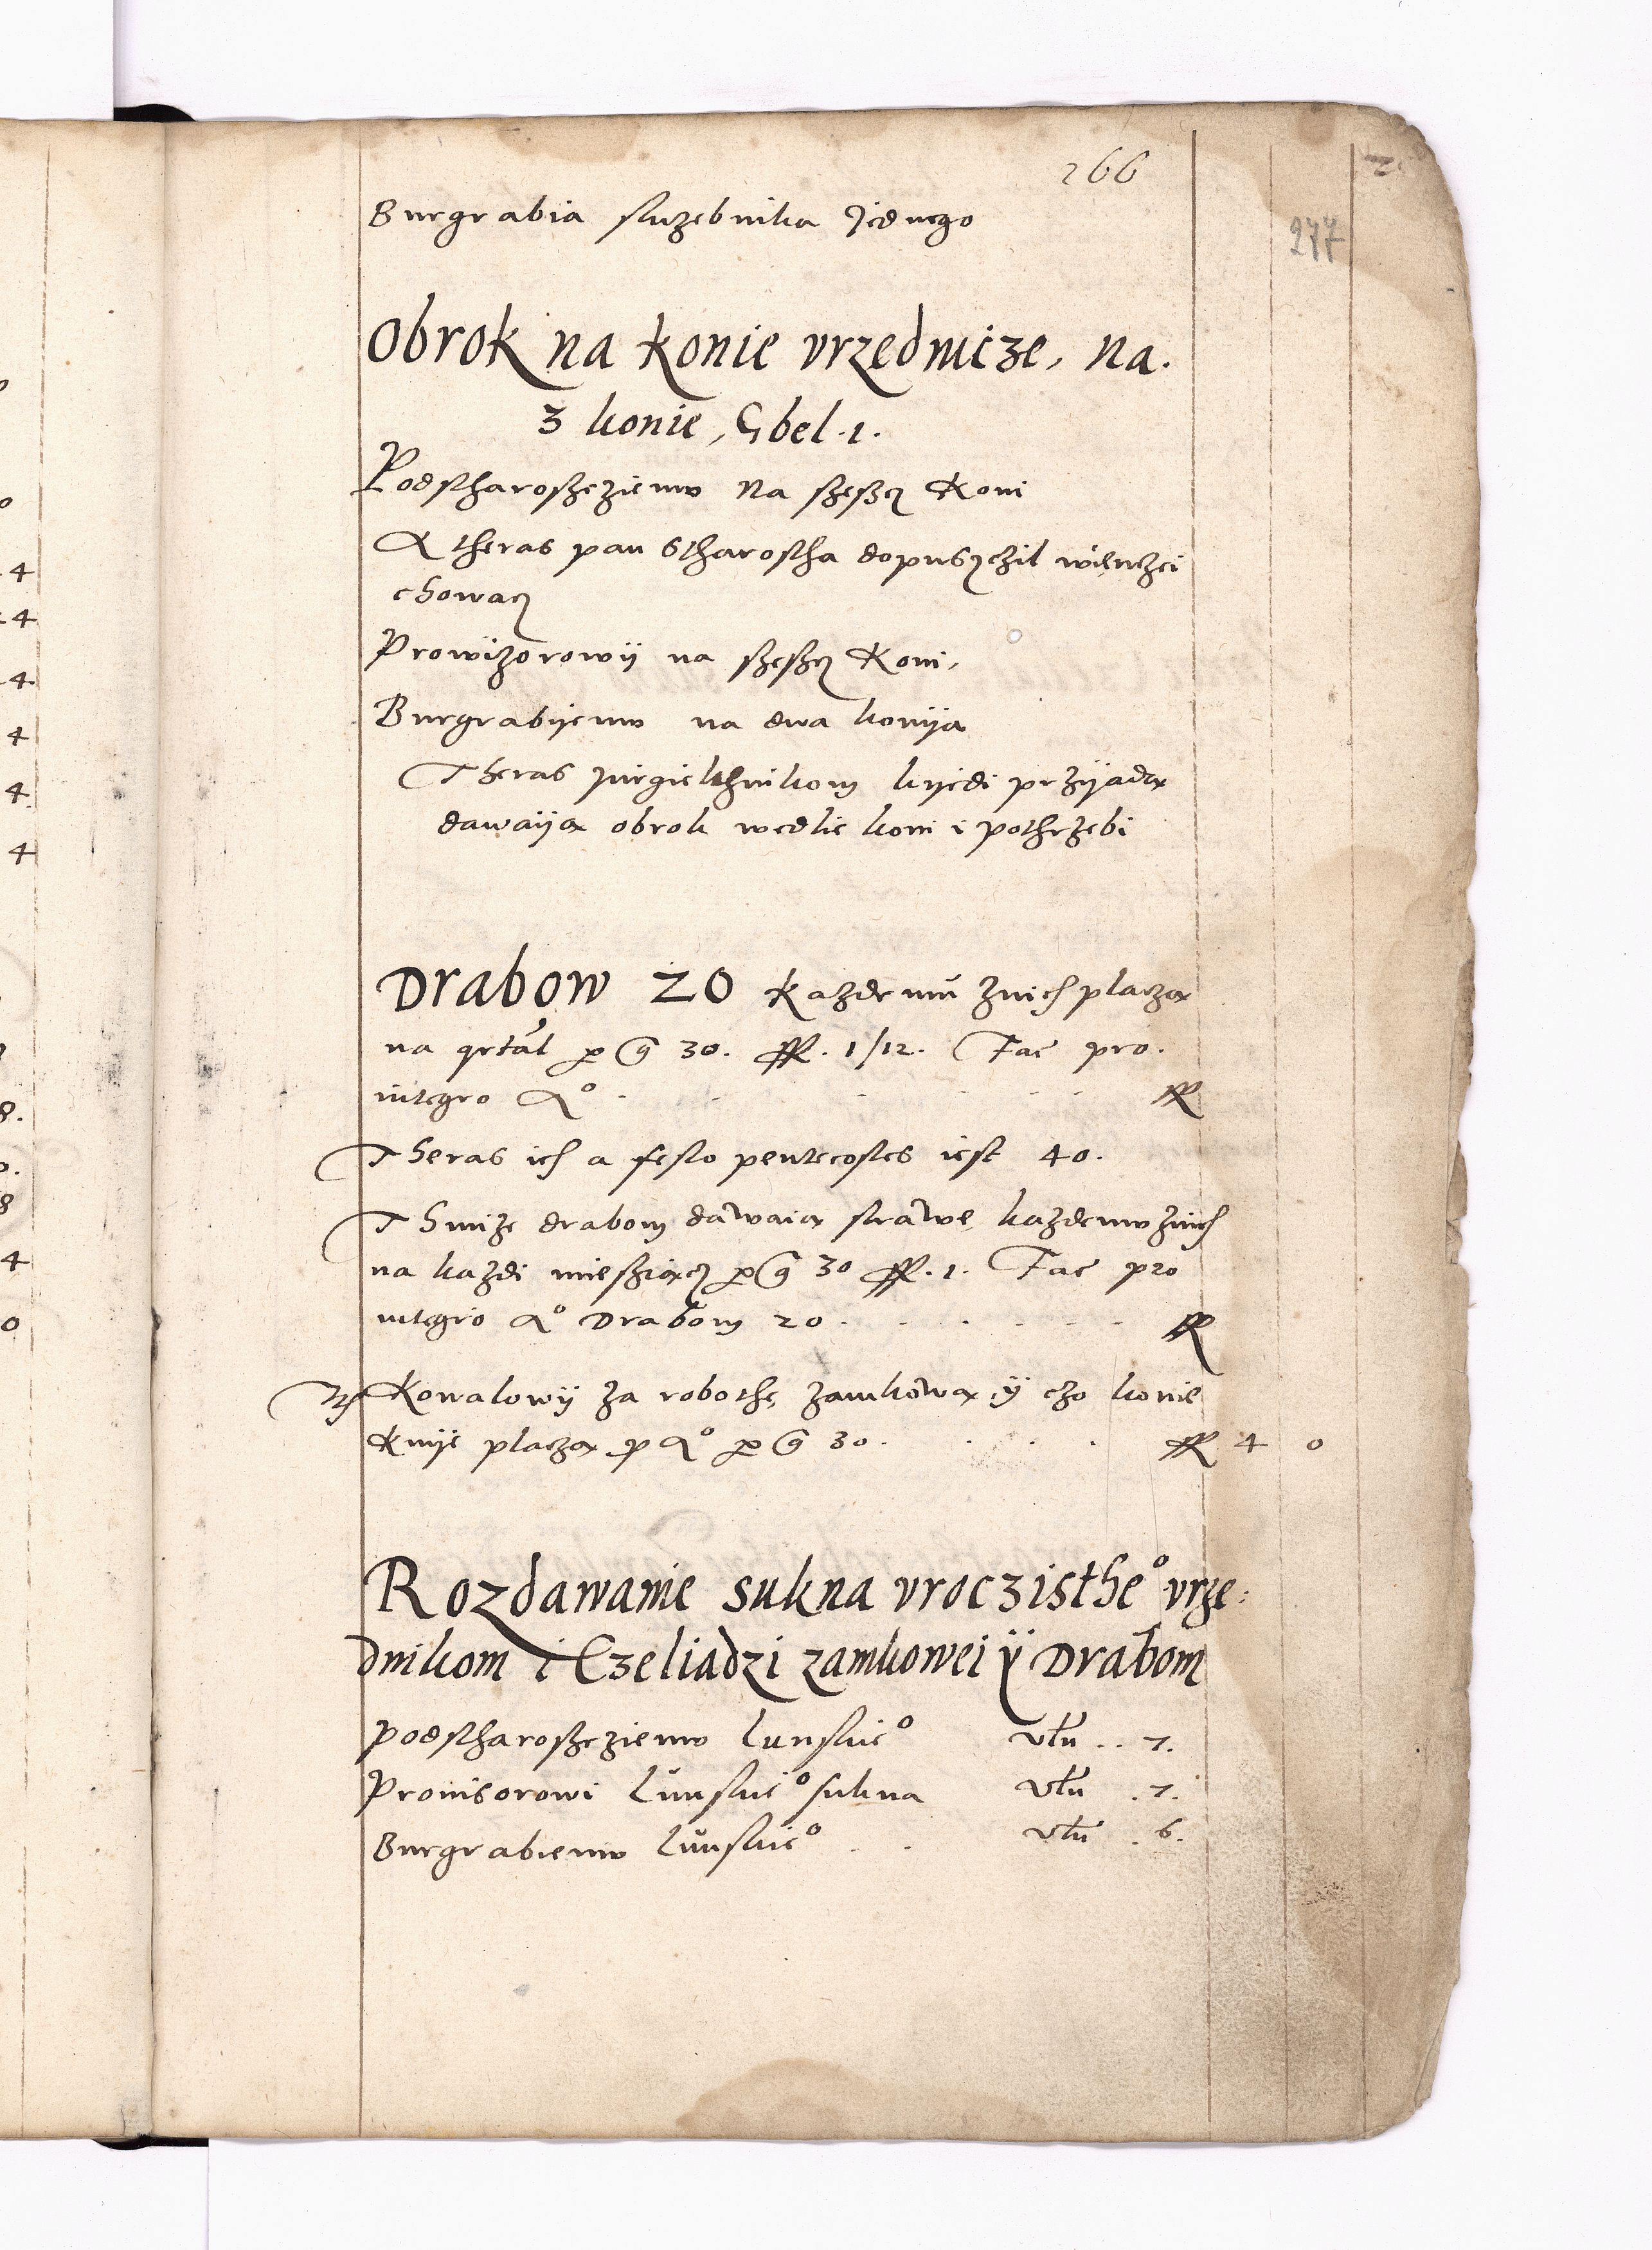 266
277
Burgrabia sluzebnika Jednego
Obrok na konie vrzednicze, na.
3 konie, Gbel. 1.
Podstharosczemu Na szescz Koni
A theras pan Stharostha dopusczil wienczei
chowacz
Prowizorowij na szescz Koni,
Burgrabijemu na dwa konija
Theras jurgielthnikom kijedi przijada
dawaija obrok wedlie koni i pothrzebi
Drabow 20 Kazdemu znich placza
na qrtal per g 30. ff. 1/12. Fac pro.
integro Ao
Theras ich a festo pentecostes iest 40.
Thimze drabom dawaia strawe kazdemu znich
na kazdi miesziacz per g 30 ff. 1. Fac pro
integro Ao Drabom 20
Kowalowij za robothe zamkowa ij czo konie
Kuije placza p Ao per g 30. ff 4 0
Rozdawanie sukna vroczistheo vrze:
dnikom i Czeliadzi zamkowei ÿ Drabom
podstharosczemu Lunskieo vln .. 7.
Prouisorowi Lunskieo sukna vln . 7.
Burgrabiemu Lunskieo vln . 6.